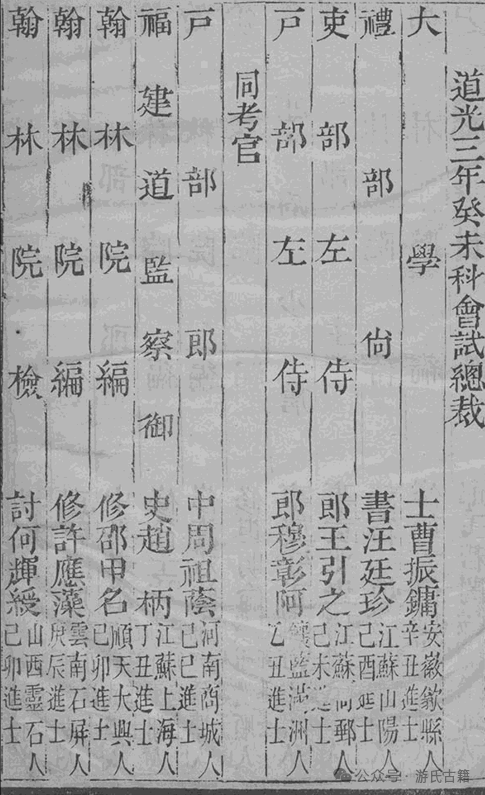 道光三年癸未科會試總裁
大學士曹振鏞安徽歙縣人辛丑進士
禮部尙書汪廷珍江蘇山陽人己酉進士
吏部左侍郎王引之江蘇高郵人己未進士
戸部左侍郎穆彰阿鑲藍滿洲人乙丑進士
同考官
戸部郎中周祖蔭河南商城人己巳進士
福建道監察御史趙柄江蘇上海人丁丑進士
翰林院編修邵甲名順天大興人己卯進士
翰林院編修許應藻雲南石屏人庚辰進士
翰林院檢討何輝綬山西靈石人己卯進士
公众号·游氏古籍